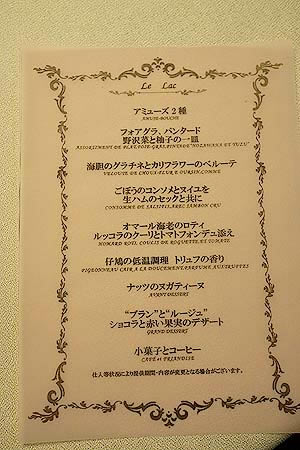 Le Lac
アミューズ 2 種
AMUSE-BOUCHE
フォアグラ、パンタード
野沢菜と柚子の一皿
海胆のグラチネとカリフラワーのベルーテ
VELOUTE DE CHOUX-FLEUR E OURSIN,COMME
ごぼうのコンソメとヌイユを
生ハムのセックと共に
CONSOMME DE SALSIFIS,AREC JAMBON CRU
オマール海老のロティ
ルッコラのクーリとトマトフォンデュ添え
HOMARD ROTI, COULIS DE ROGUETTE,ET TOMATE
仔鳩の低温調理 トリュフの香り
PIGEONNEAU CAIR A LA DOUCEMENT,PARFUME AUX TRUFFES
ナッツのヌガティーヌ
AVANT DESSERT
“ブラン”と“ルージュ”
ショコラと赤い果実のデザート
GRAND DESSERT
小菓子とコーヒー
CAFÉ et FRIANDISE
仕入等状況により提供期間・内容が変更となる場合がございます。